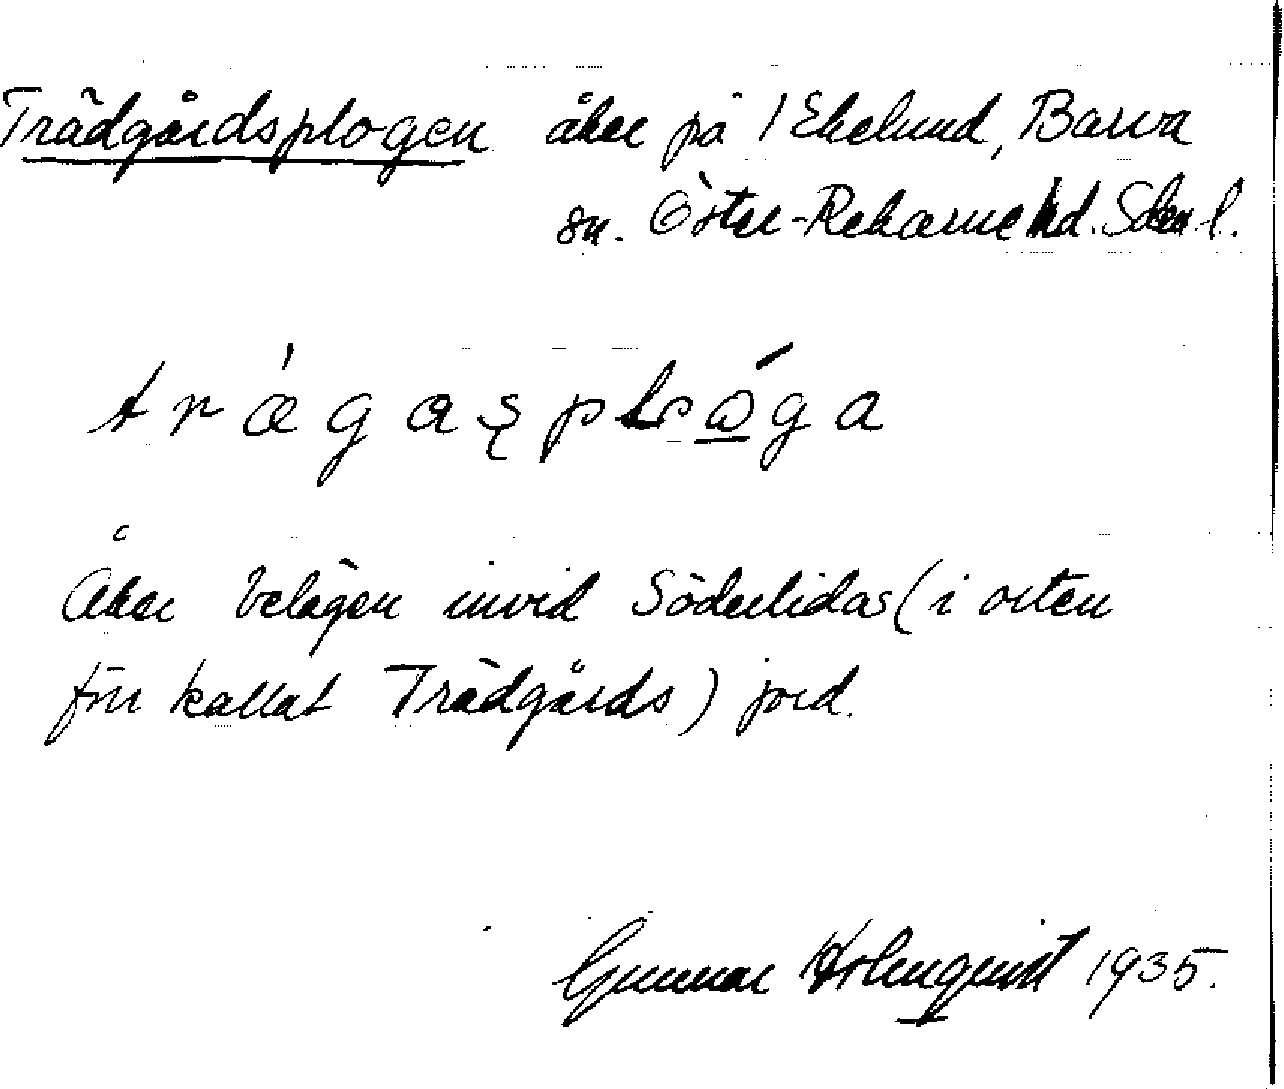 Trädgårdsplogen åker på 1 Ekelund, Barva
sn. Öster-Rekarne hd. Söderm. l.
trǽgaş plώ̲ga
Åker belägen invid Söderlidas (i orten
förr kallat Trädgårds) jord.
Gunnar Holmquist 1935.